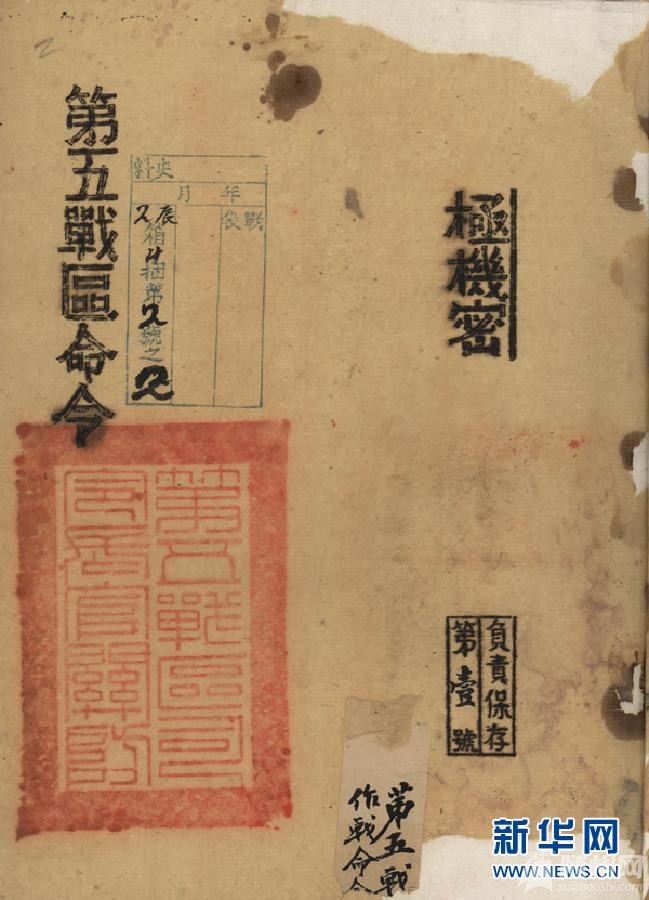 極機密
負責保存
第壹號
第五戰區命令
史料
年
月
戰役
辰
2箱4捆第2號之2
第五戰區司
令長官關防
第五戰
作戰命令
2
新华网
WWW.NEWS.CN
随州网
suizhoushi.com